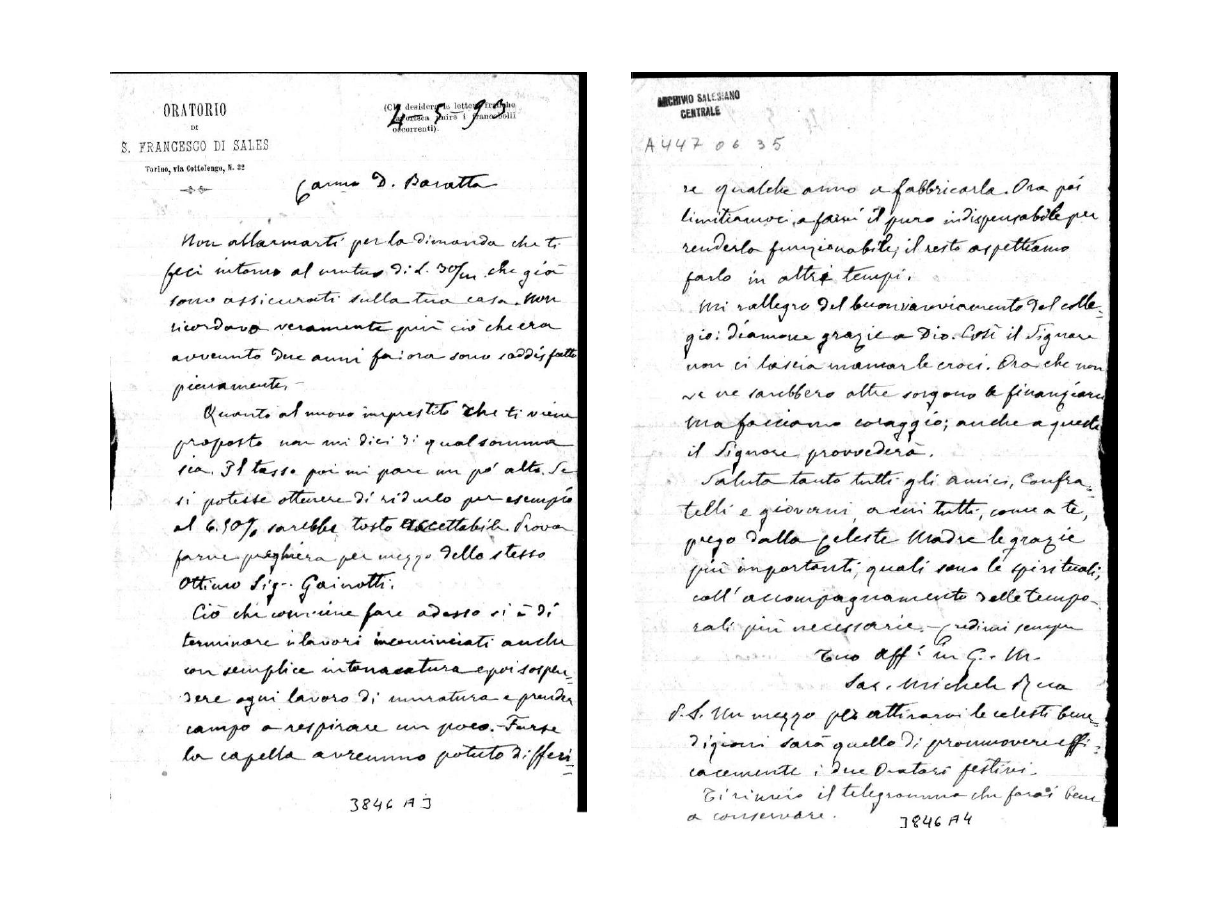 ORATORIO
DI
S. FRANCESCO DI SALES
Torino, via Cottolengo, N. 32
(Chi desidera le lettere franche
unire i francobolli
occorrenti).
4-5-93
Carmo D. Baratta
Non allarmarti per la dimanda che ti
feci intorno al mutuo di L. 30/m che già
sono assicurati sulla tua casa. Non
ricordavo veramente più ciò che era
avvenuto due anni fa: ora sono soddisfatto
pienamente.-
Quanto al nuovo imprestito che ti viene
proposto non mi dici di qual somma
sia. Il tasso poi mi pare un po' alto. Se
si potesse ottenere di ridurlo per esempio
al 6.50% sarebbe tosto accettabile. Prova
farne preghiera per mezzo dello stesso
Ottimo Sig.r Gainotti.
Ciò che conviene fare adesso si è di
terminare i lavori incominciati anche
con semplice intonacatura e poi sospen=
dere ogni lavoro di muratura e prender
campo a respirare un poco.- Forse
la capella avremmo potuto differi=
3846 A3
ARCHIVIO SALESIANO
CENTRALE
A447 06 35
re qualche anno a fabbricarla. Ora poi
limitiamoci a farvi il puro indispensabile per
renderla funzionabile; il resto aspettiamo
farlo in altri tempi.
Mi rallegro del buon avviamento del colle=
gio: diamone grazie a Dio. Così il Signore
non ci lascia mancar le croci. Ora che non
ve ne sarebbero altre sorgono le finanziarie
ma facciamo coraggio; anche a queste
il Signore provvederà.
Saluta tanto tutti gli amici, Confra=
telli e giovani, a cui tutti, come a te,
prego dalla Celeste Madre le grazie
più importanti, quali sono le spirituali,
coll'accompagnamento delle tempo-
rali più necessarie.- Credimi sempre
Tuo aff.o in G. M.
Sac. Michele Rua
P.S. Un mezzo per attirarvi le celesti bene=
dizioni sarà quello di promuovere effi=
cacemente i due Oratori festivi.
Ti rinvio il telegramma che farai bene
a conservare.
3846 A4